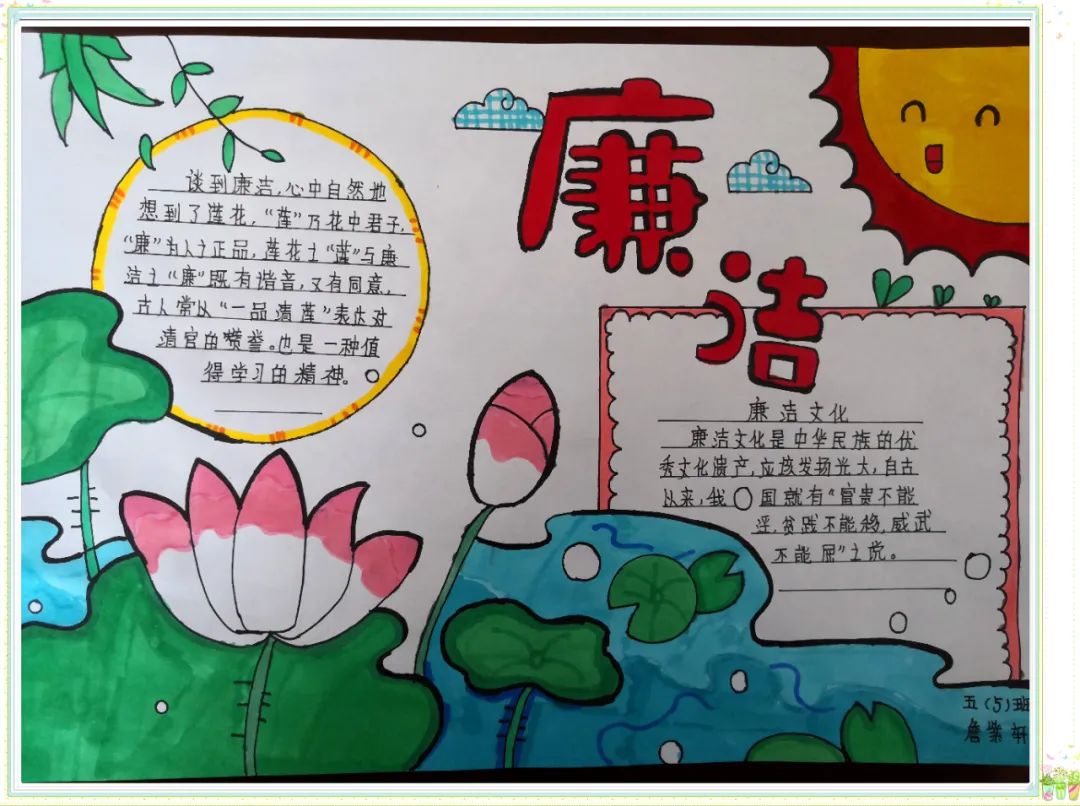 廉洁
谈到廉洁，心中自然地
想到了莲花，“莲”乃花中君子，
“廉”为人之正品，莲花之“莲”与廉
洁之“廉”既有谐音，又有同意，
古人常以“一品清莲”表达对
清官的赞誉。也是一种值
得学习的精神。
廉洁文化
廉洁文化是中华民族的优
秀文化遗产，应该发扬光大，自古
以来，我国就有“富贵不能
淫，贫贱不能移，威武
不能屈”之说。
五（5）班
詹紫轩